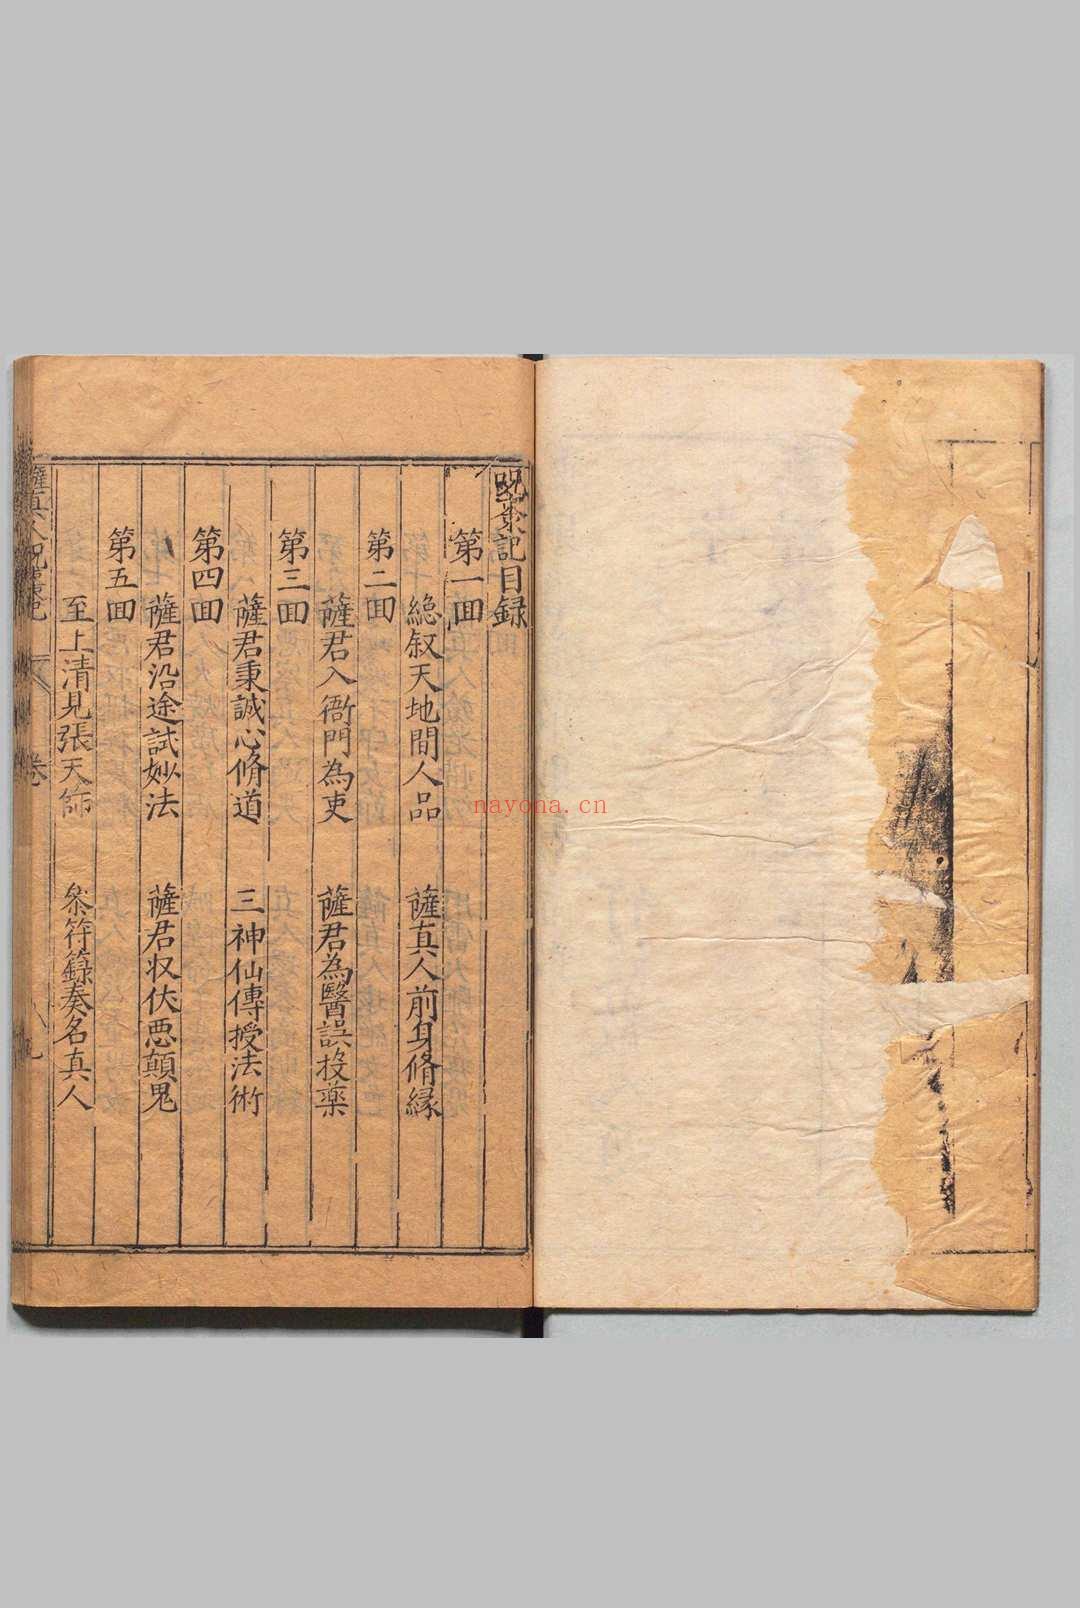 呪棗記目録
第一囬
緫叙天地間人品　薩真人前身脩縁
第二囬
薩君入衙門為吏　薩君為醫誤投藥
第三囬
薩君秉誠心脩道　三神仙傳授法術
第四囬
薩君沿途試妙法　薩君収伏惡顛鬼
第五囬
至上清見張天師　叅符籙奏名真人
薩真人呪棗記　卷
nayona.cn